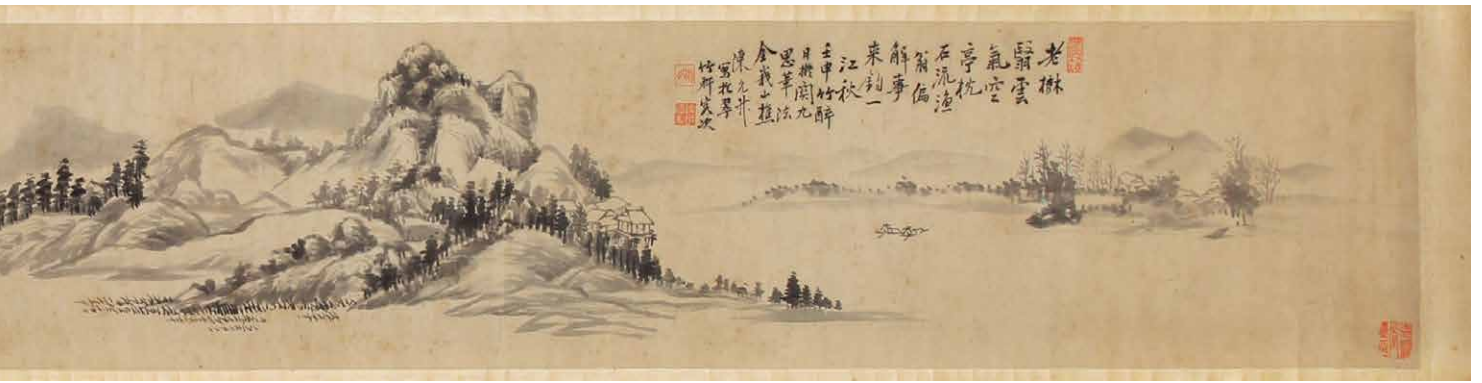 老樹
翳雲
氣空
亭枕
石流漁
翁偏
解事
来釣一
江秋
壬申竹醉
日撫關九
思筆法
金峩山樵
陳允升
寫於翠
竹軒寓次